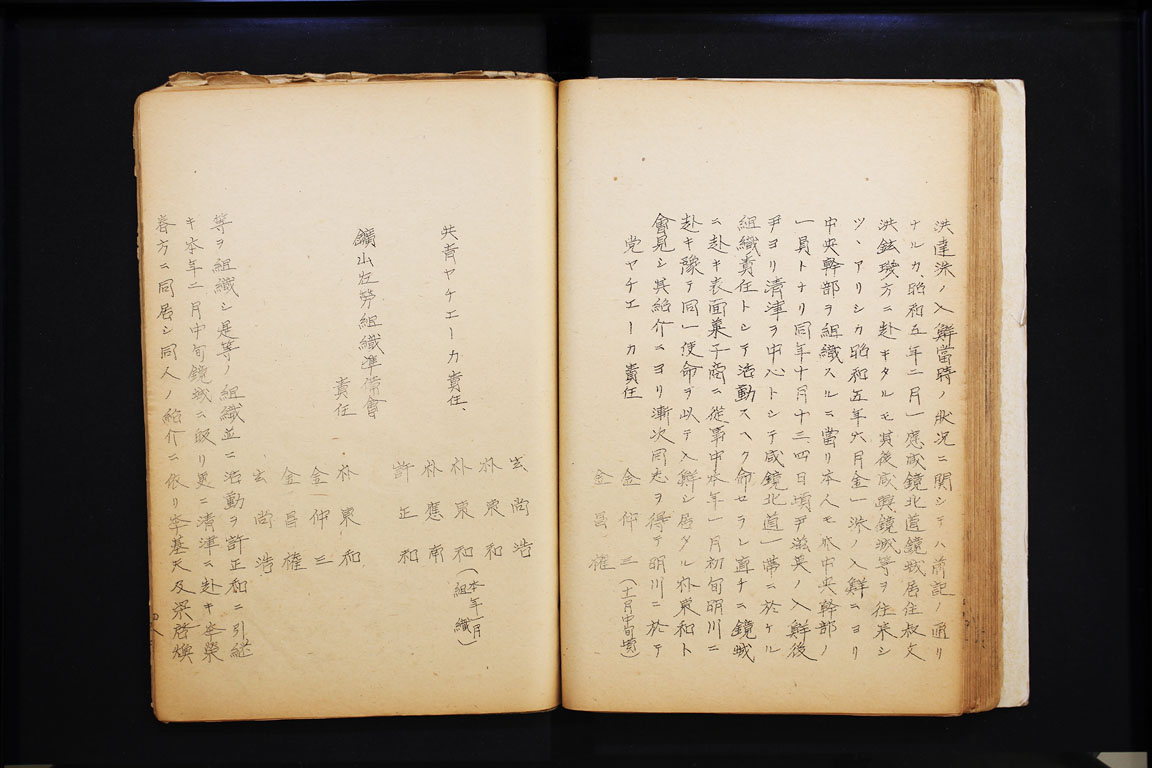 洪達洙ノ入鮮當時ノ狀況ニ關シテハ前記ノ通リ
ナルカ、昭和五年二月一應咸鏡北道鏡城居住叔文
洪鉉璣方ニ赴キタルモ其後咸興鏡城等ヲ往來シ
ツヽアリシカ昭和五年六月金一洙ノ入鮮ニヨリ
中央幹部ヲ組織スルニ當リ本人モ亦中央幹部ノ
一員トナリ同年十月十三四日頃尹滋英ノ入鮮後
尹ヨリ清津ヲ中心トシテ咸鏡北道一帶ニ於ケル
組織責任トシテ活動スヘク命セラレ直チニ鏡城
ニ赴キ表面菓子商ニ從事中本年一月初旬明川ニ
赴キ豫テ同一使命ヲ以テ入鮮シ居タル朴東和ト
會見シ其紹介ニヨリ漸次同志ヲ得テ明川ニ於テ
党ヤチエーカ責任
金仲三(十一月中旬頃)
金昌權
玄尚浩
朴東和
共青ヤチエーカ責任、朴東和(本年一月組織)
朴應南
許正和
鑛山左勞組織準備會
責任 朴東和
金仲三
金昌權
玄尚浩
等ヲ組織シ是等ノ組織並ニ活動ヲ許正和ニ引継
キ本年二月中旬鏡城ニ皈リ更ニ清津ニ赴キ李榮
春方ニ同居シ同人ノ紹介ニ依リ李基天及梁啓煥